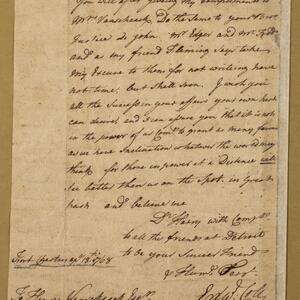 You will after giving my compliments to
Mrs. Vanschaack Do the same to your Bror
Justice St. John. Mr. Edgar and Mr.
and as my friend Fleming says take
My Excuse to them for not writing have
not time, but shall soon. I wish you
all the Success in your affairs your own heart
can desire, and I can assure you that it is not
in the power of a to grant as many favors
as we have Inclination whatever the world may
think for those in power at a Distance
see better than us on the Spot. in Great
hast and believe me
Dr. Harry with Compts.
to all the friends at Detroit
to be your Sincere Friend
& Humb.
Fort Chartres 13th 1768
To Henry Vanschaack Esqr.
Cole